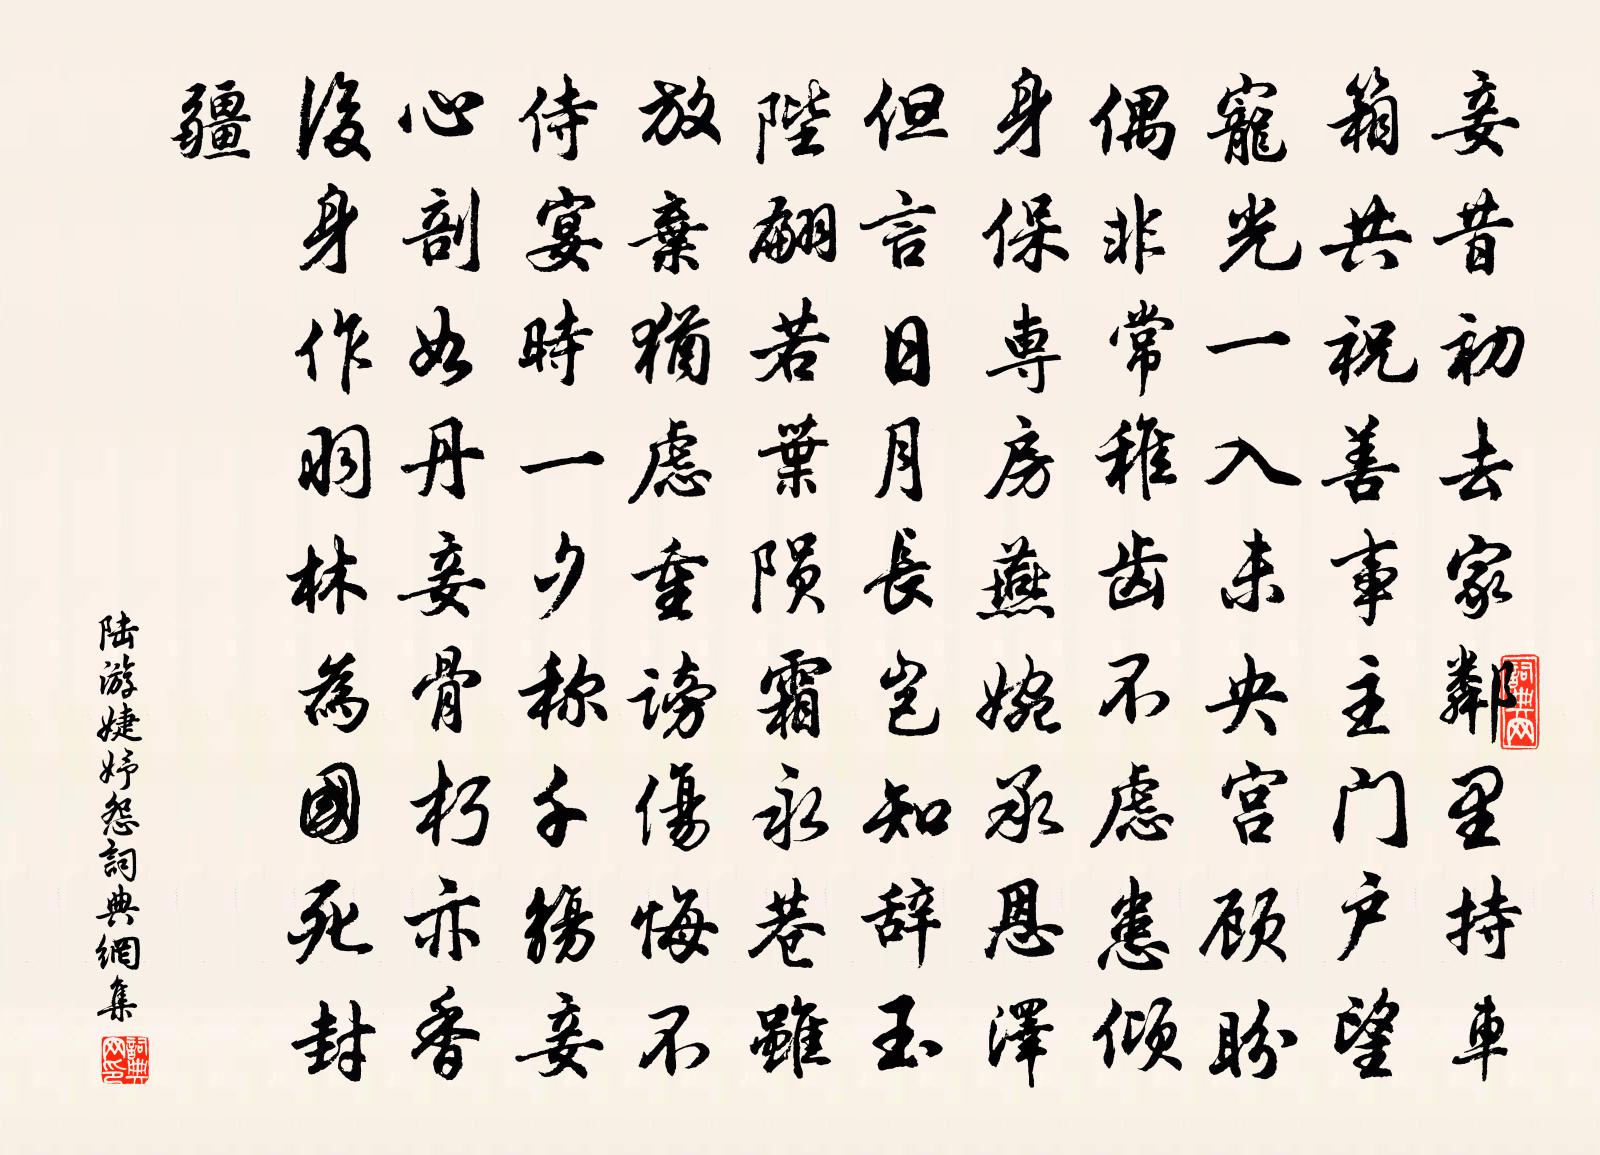 妾昔初去家鄰里持車
箱共祝善事主门户望
寵光一入未央宫顾盼
偶非常稚齿不虑患倾
身保専房燕婉承恩澤
但言日月長岂知辞玉
陛翩若葉陨霜永巷雖
放棄猶虑重谤傷悔不
侍宴時一夕称千觴妾
心剖如丹妾骨朽亦香
後身作羽林為國死封
疆
陆游婕妤怨詞典網集
詞典网
詞典网印